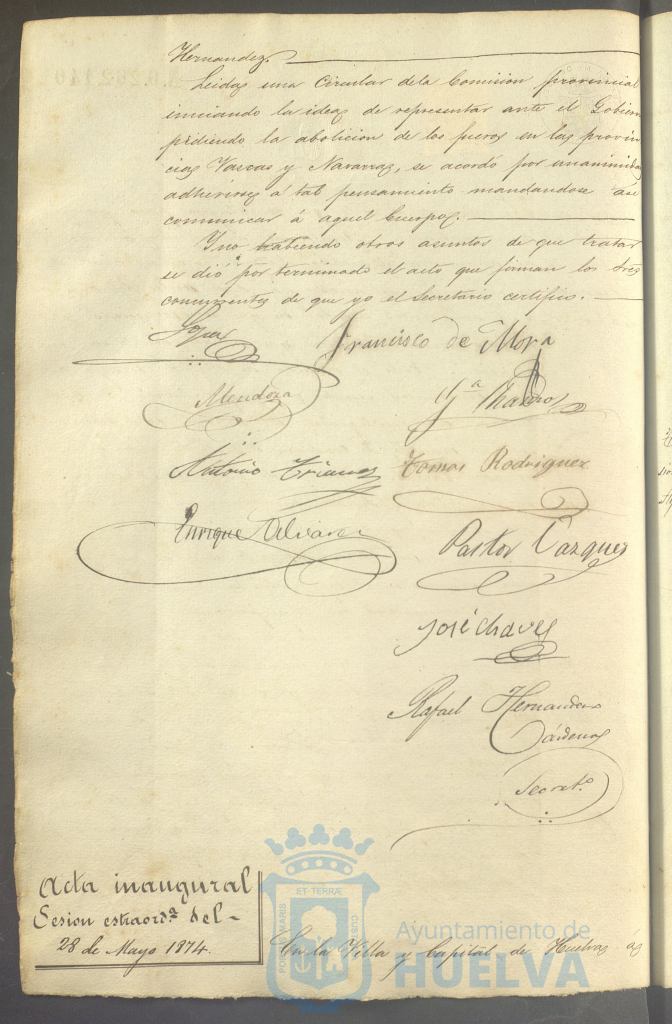 Hernandez.
Leida una Circular dela Comision provincial
iniciando la idea de representar ante el Gobier
pidiendo la abolicion de los fueros en las provin
cias Vascas y Navarra, se acordó por unanimidad
adherirse á tal pensamiento mandandose asi
comunicar á aquel Cuerpo.
Y no habiendo otros asuntos de que tratar
se dió por terminado el acto que firman los Sres
concurrentes de que yo el Secretario certifico.
Francisco de Mora
Mendoza
Antonio Triana
Tomas Rodriguez
Enrique Alvarez
Pastor Vazquez
José Chaves
Rafael Hernandez
Cárdenas
Secret.º
Acta inaugural
Sesion estraord.ª del
28 de Mayo 1874.
En la Villa y Capital de Huelva á
ET TERRÆ
PORTUS MARIS
CUSTODIA
Ayuntamiento de
HUELVA